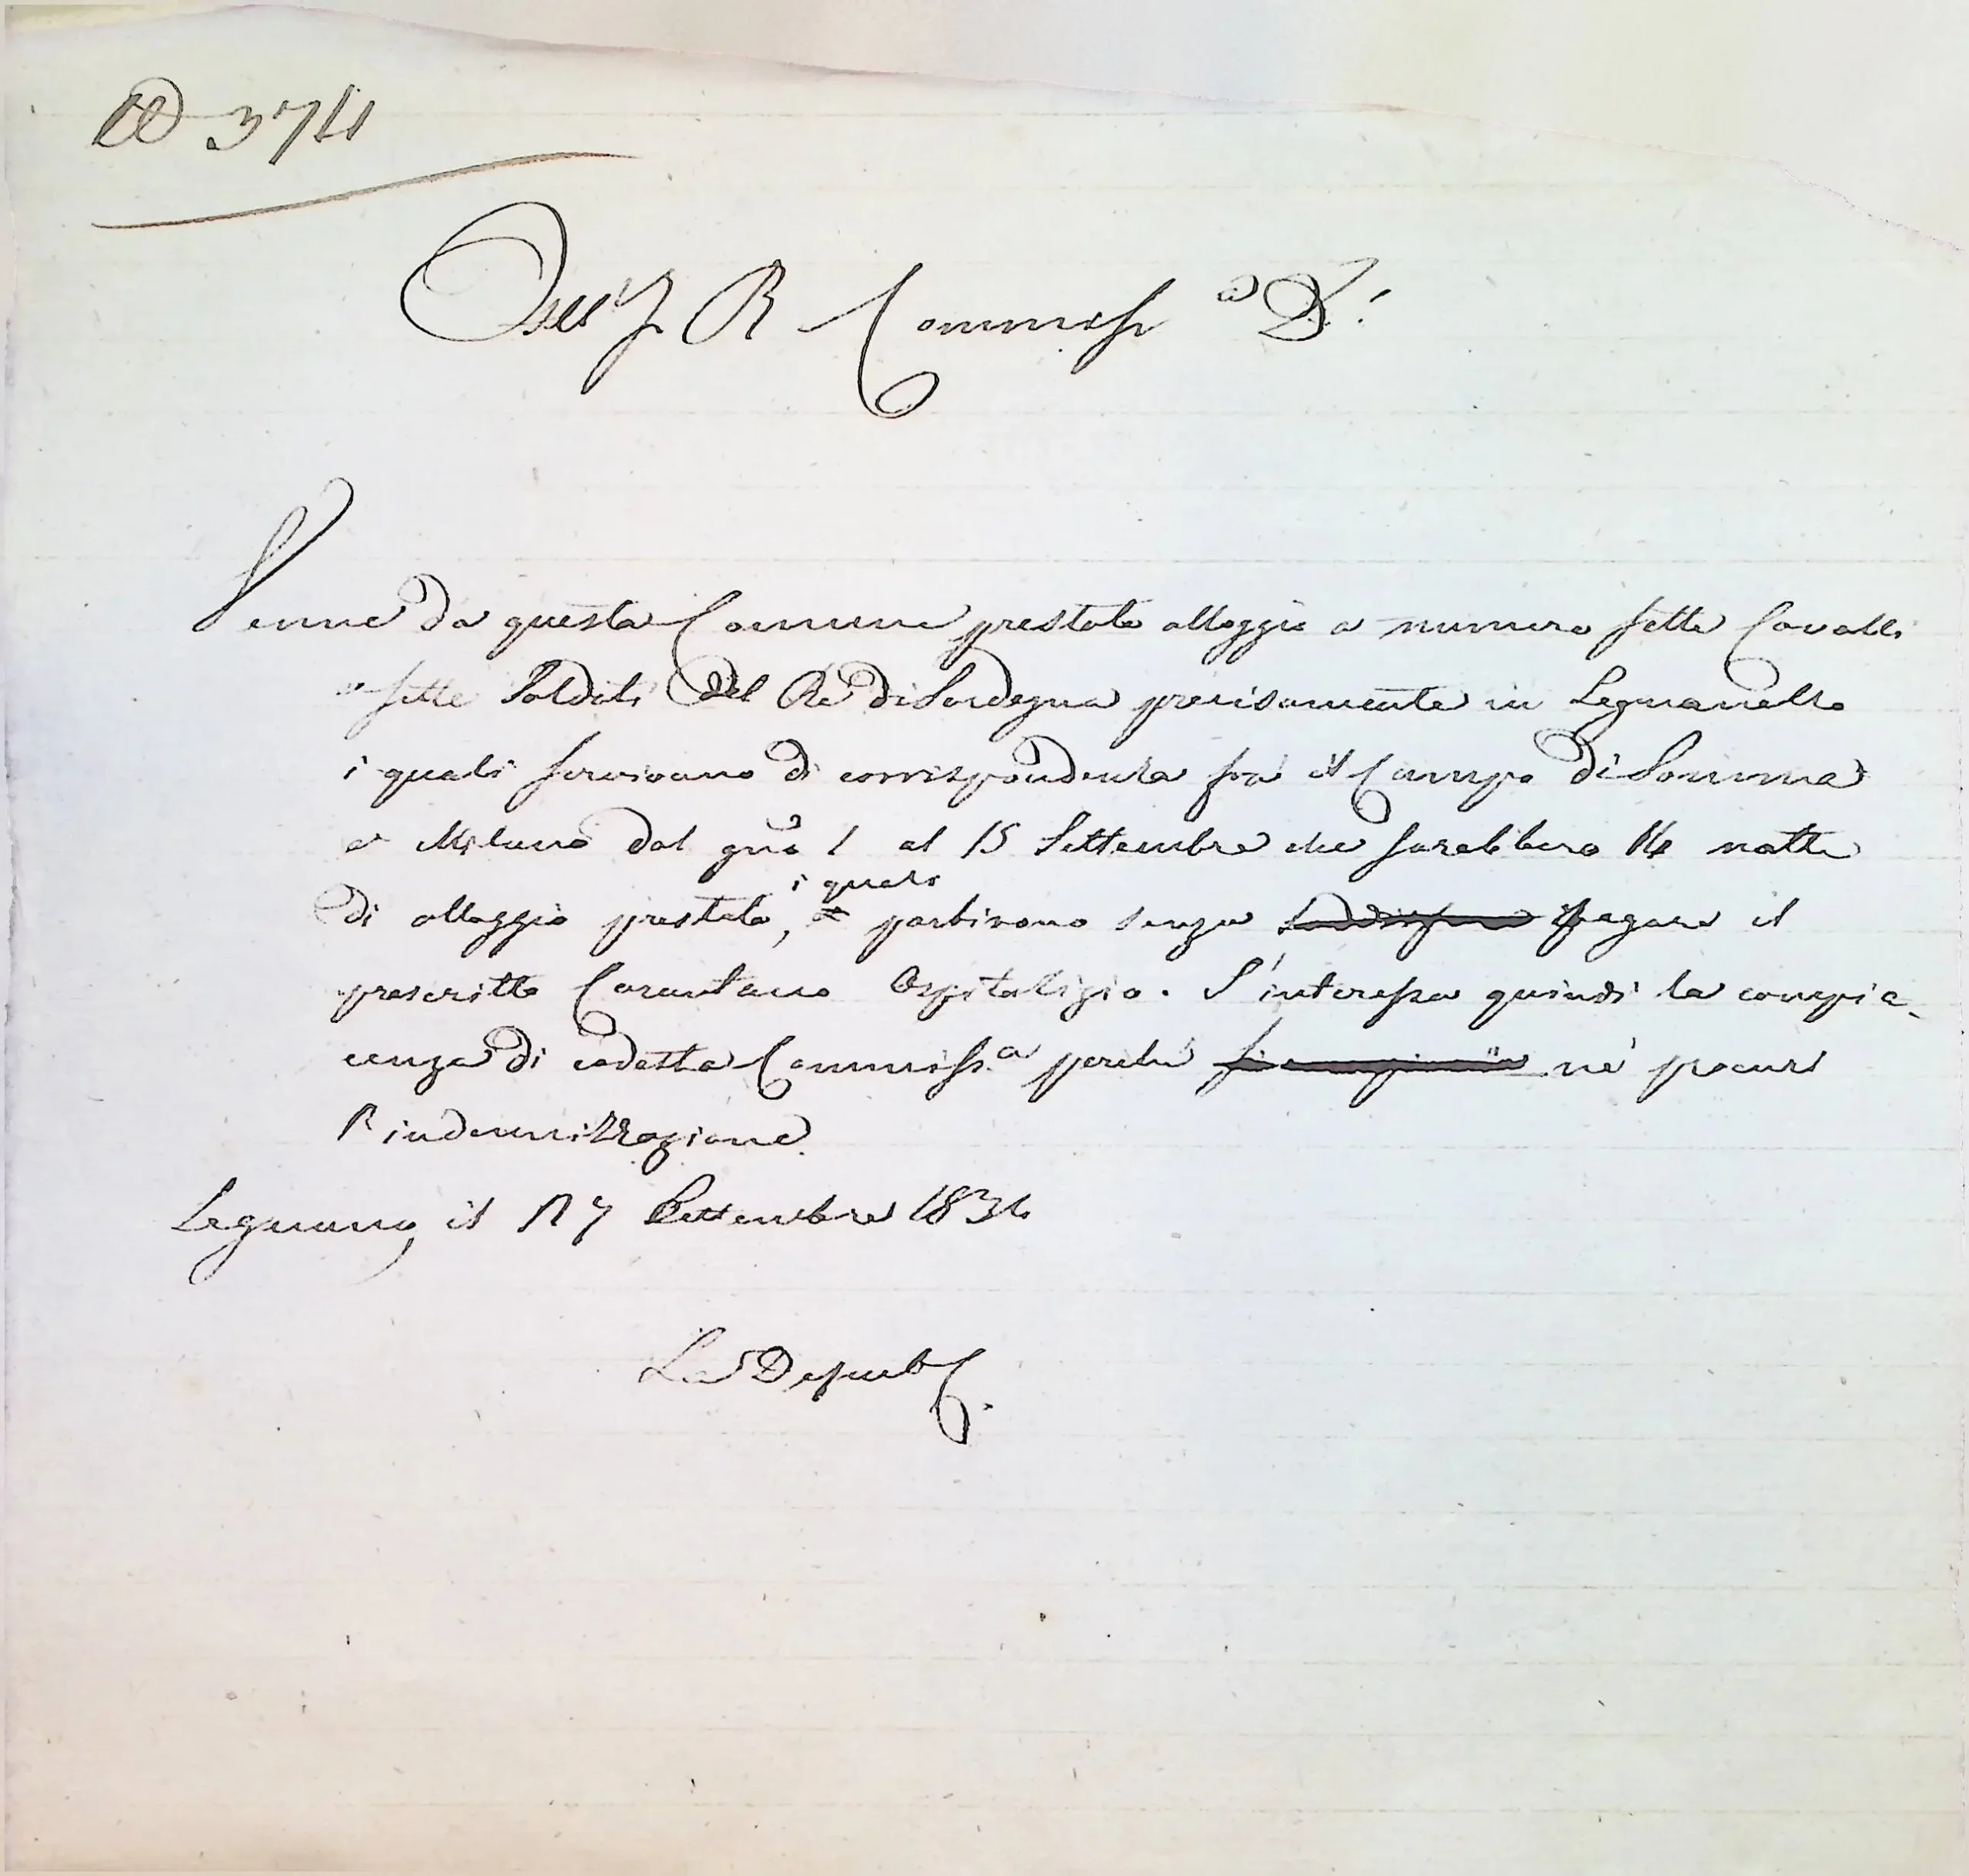 374
All' I R Commiss.a D.
Venne da questa Comune prestato alloggio a numero sette Cavalli
e sette Soldati del Re di Sardegna precisamente in Legnanello
i quali servivano di corrispondenza fra il Campo di Somma
e Milano dal gno 1 al 15 Settembre che sarebbero 14 notti
i quali
di alloggio prestato, partirono senza pagare il
prescritto Carantano Ospitalizio. S'interessa quindi la compia-
cenza di codesta Commiss.a perchè ne procuri
l'indennizzazione.
Legnano, il 17 Settembre 1834
La Deput.